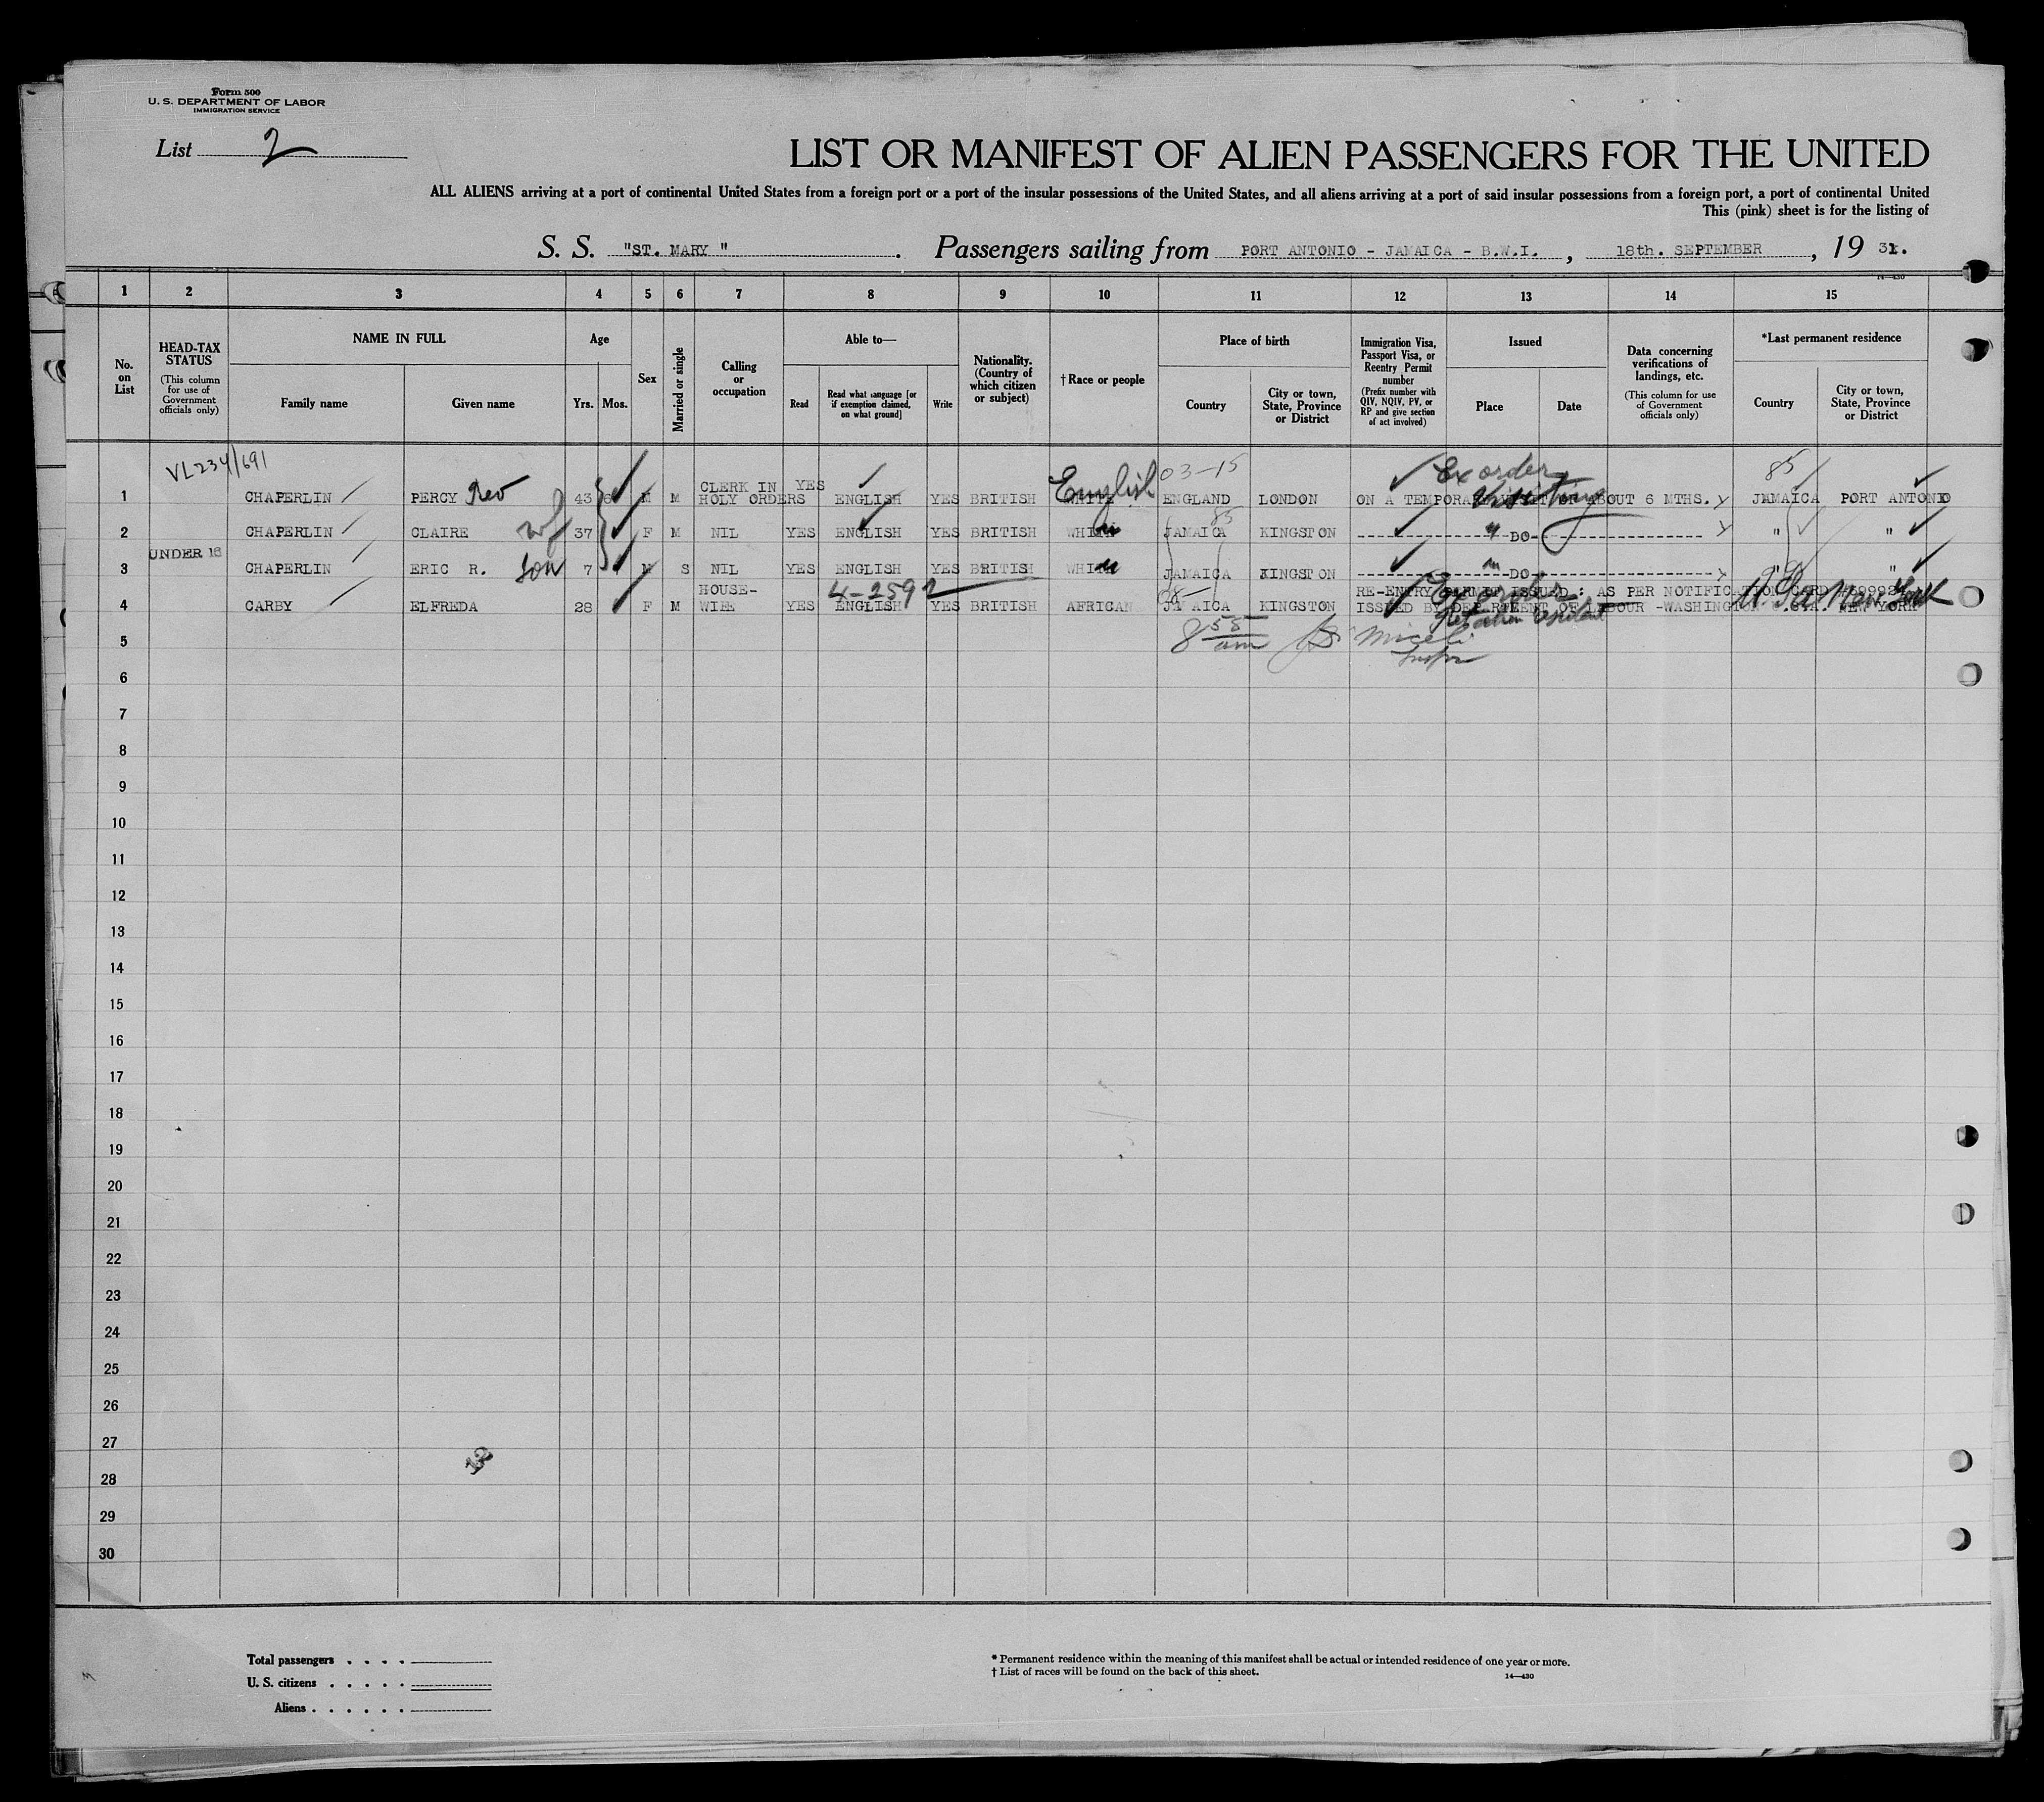 Form 500
U. S. DEPARTMENT OF LABOR
IMMIGRATION SERVICE
List 2
LIST OR MANIFEST OF ALIEN PASSENGERS FOR THE UNITED
ALL ALIENS arriving at a port of continental United States from a foreign port or a port of the insular possessions of the United States, and all aliens arriving at a port of said insular possessions from a foreign port, a port of continental United
This (pink) sheet is for the listing of
S. S. "ST. MARY ". Passengers sailing from PORT ANTONIO - JAMAICA - B.W.I., 18th. SEPTEMBER, 19 31.
14-430
1 2 3 4 5 6 7 8 9 10 11 12 13 14 15
No. on List
HEAD-TAX STATUS (This column for use of Government officials only)
NAME IN FULL
Family name
Given name
Age
Yrs. Mos.
Sex
Married or single
Calling or occupation
Able to—
Read
Read what language [or if exemption claimed, on what ground]
Write
Nationality. (Country of which citizen or subject)
† Race or people
Place of birth
Country
City or town, State, Province or District
Immigration Visa, Passport Visa, or Reentry Permit number (Prefix number with QIV, NQIV, PV, or RP and give section of act involved)
Issued
Place
Date
Data concerning verifications of landings, etc. (This column for use of Government officials only)
*Last permanent residence
Country
City or town, State, Province or District
VL234/691
03-15 Ex order 85
1 CHAPERLIN PERCY Rev 43 M M CLERK IN HOLY ORDERS YES ENGLISH YES BRITISH English WHITE ENGLAND LONDON ON A TEMPORARY VISIT OF ABOUT 6 MTHS. Visiting JAMAICA PORT ANTONIO
85
2 CHAPERLIN CLAIRE wf 37 F M NIL YES ENGLISH YES BRITISH WHITE " JAMAICA KINGSTON " DO- " "
UNDER 16
3 CHAPERLIN ERIC R. son 7 M S NIL YES ENGLISH YES BRITISH WHITE " JAMAICA KINGSTON " DO- " "
4-2592
4 CARBY ELFREDA 28 F M HOUSE-WIFE YES ENGLISH YES BRITISH AFRICAN JAMAICA KINGSTON RE-ENTRY PERMIT ISSUED : AS PER NOTIFICATION CARD
ISSUED BY DEPARTMENT OF LABOUR -WASHINGTON NEW YORK New York
Ex order
8 55 am Miceli
Inspr
5
6
7
8
9
10
11
12
13
14
15
16
17
18
19
20
21
22
23
24
25
26
27
28
29
30
Total passengers . . . .
U. S. citizens . . . . .
Aliens . . . . . .
* Permanent residence within the meaning of this manifest shall be actual or intended residence of one year or more.
† List of races will be found on the back of this sheet.
14-430